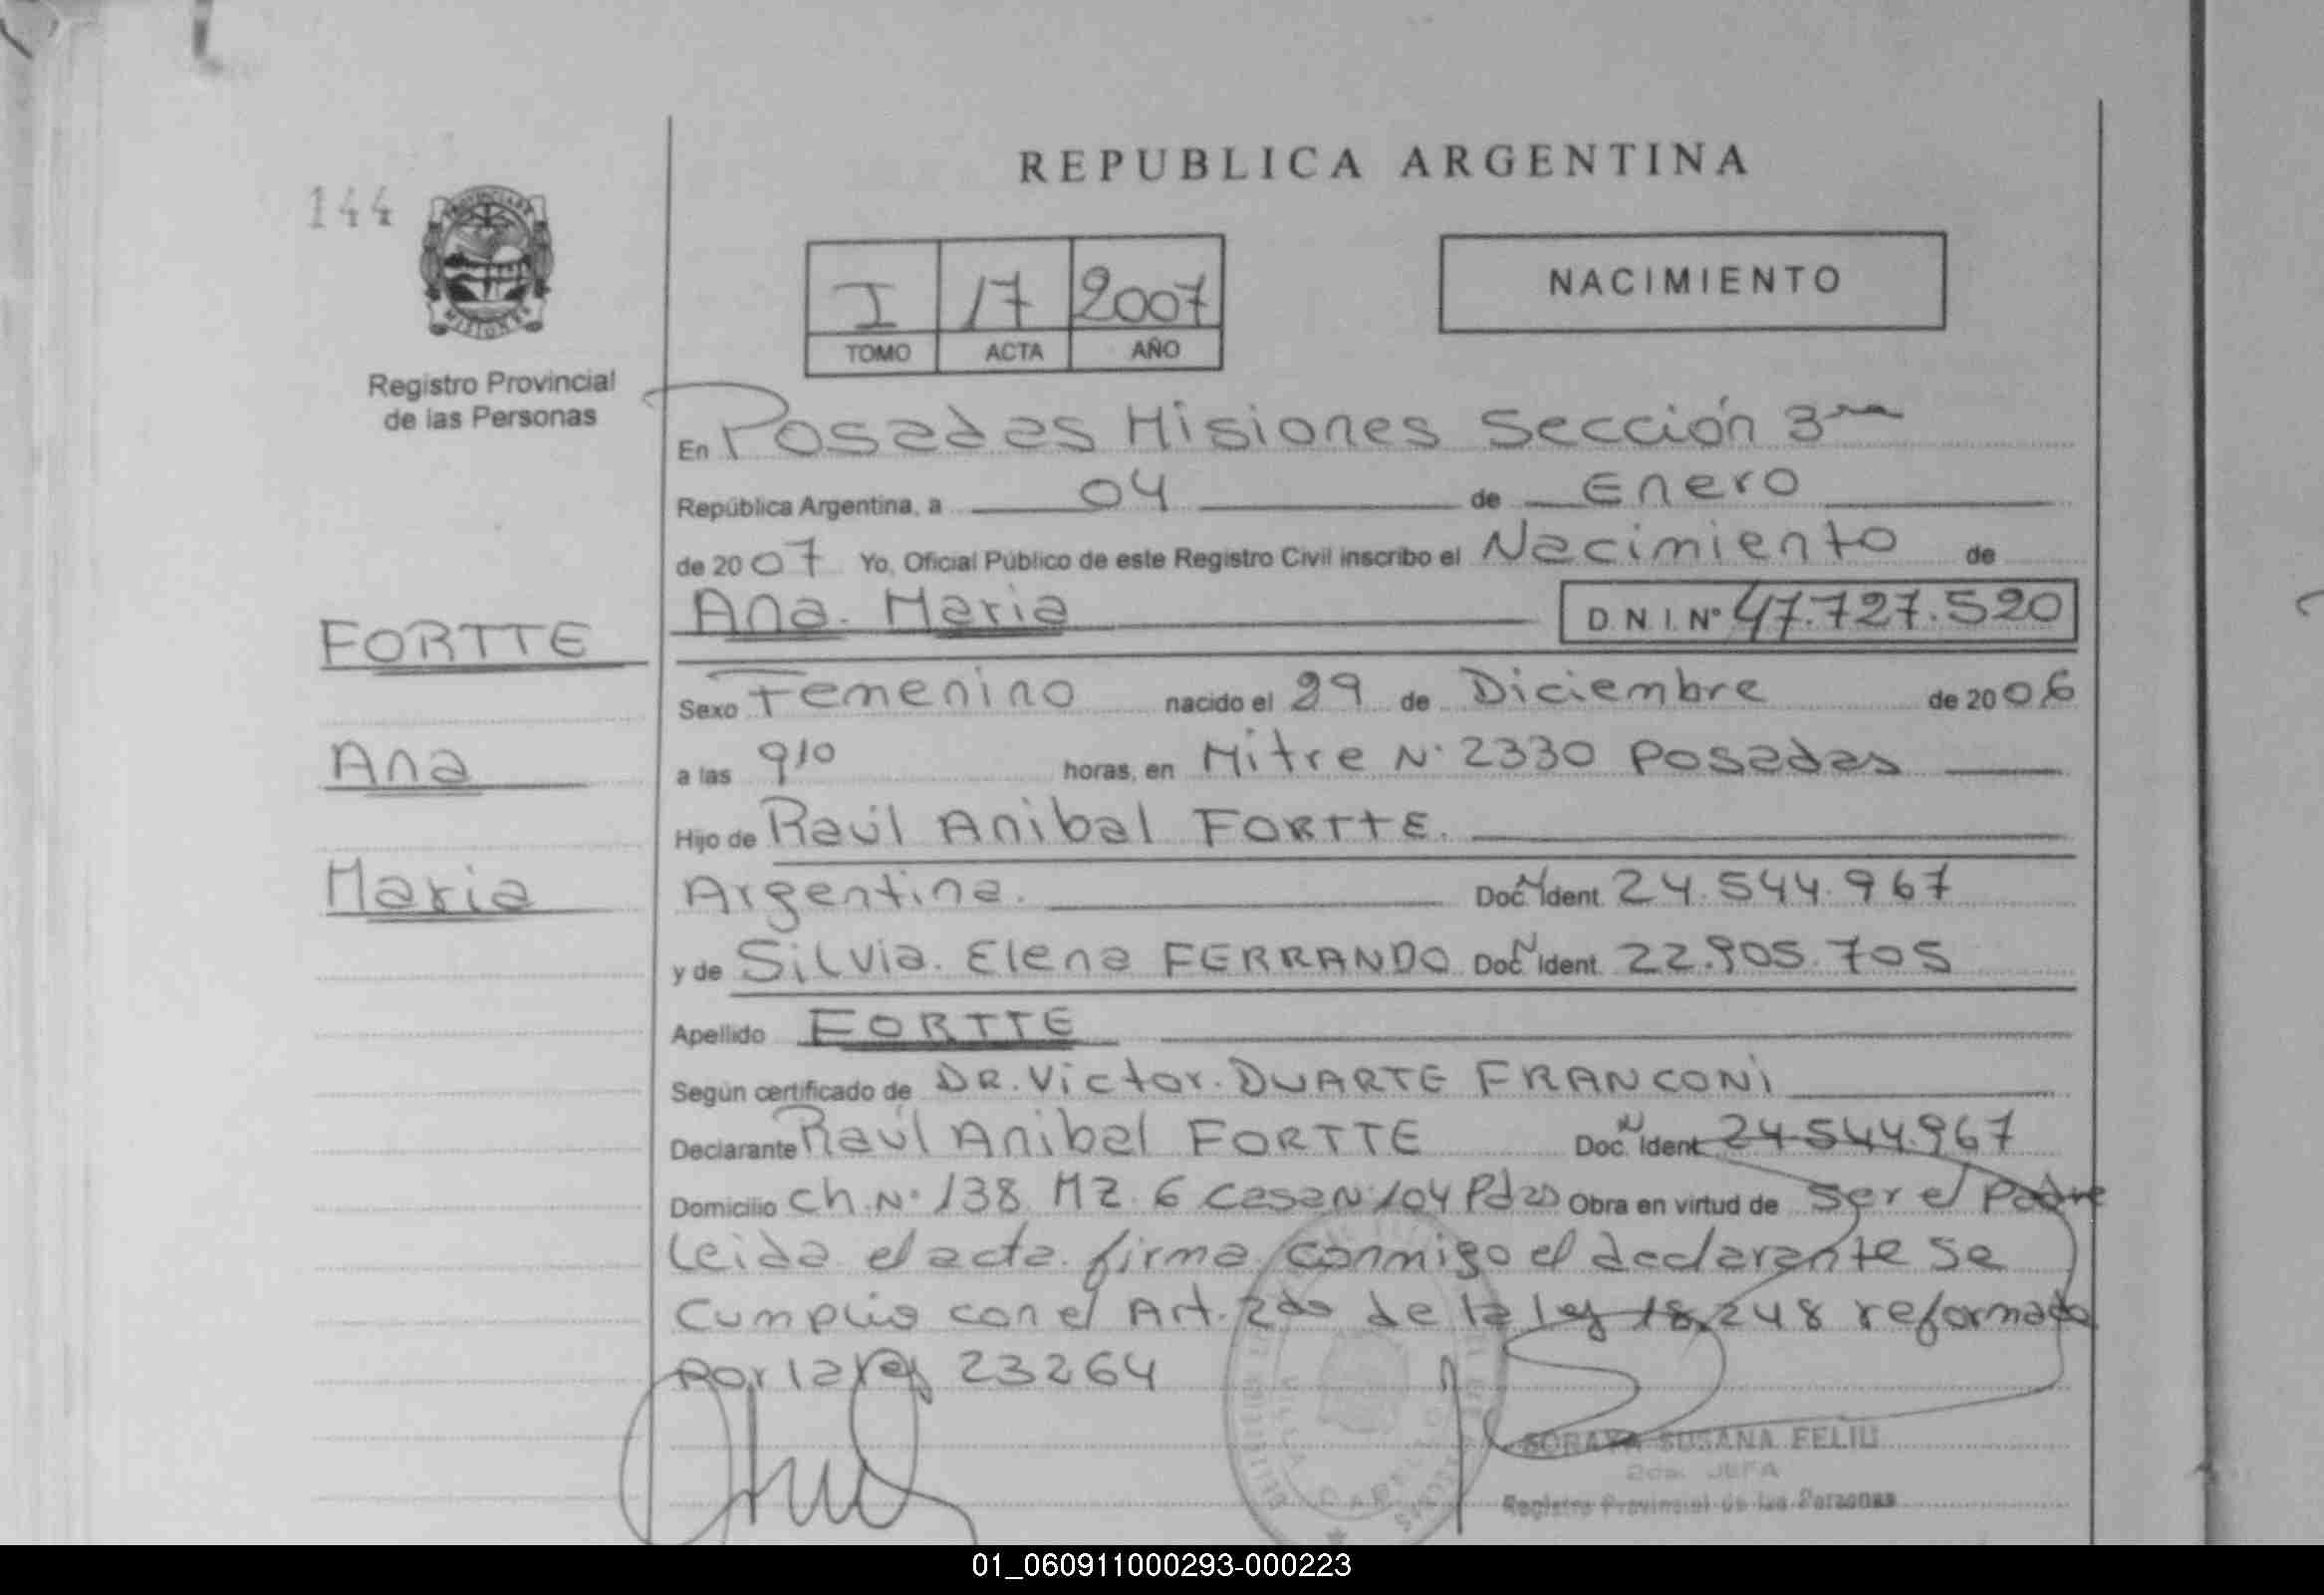 REPUBLICA ARGENTINA
144
PROVINCIA DE
MISIONES
Registro Provincial
de las Personas
I 17 2007
TOMO ACTA AÑO
NACIMIENTO
En Posadas Misiones Sección 3ra
República Argentina, a 04 de Enero
de 2007 Yo, Oficial Público de este Registro Civil inscribo el Nacimiento de
Ana Maria D.N.I. Nº 47.727.520
FORTTE
Sexo Femenino nacido el 29 de Diciembre de 2006
Ana
a las 910 horas, en Mitre N° 2330 Posadas
Hijo de Raúl Anibal FORTTE.
Maria
Argentina. Doc. N Ident. 24.544.967
y de Silvia Elena FERRANDO Doc. N Ident. 22.905.705
Apellido FORTTE
Según certificado de DR. Victor DUARTE FRANCONI
Declarante Raúl Anibal FORTTE Doc. N Ident. 24544967
Domicilio Ch. N° 138 MZ 6 Casa N° 104 Pdas Obra en virtud de Ser el Padre
Leida el acta firma conmigo el declarante se
Cumplio con el Art. 2do de la ley 18.248 reformado
Por la ley 23264
SORAYA SUSANA FELIU
2da. JEFA
Registro Provincial de las Personas
01_060911000293-000223